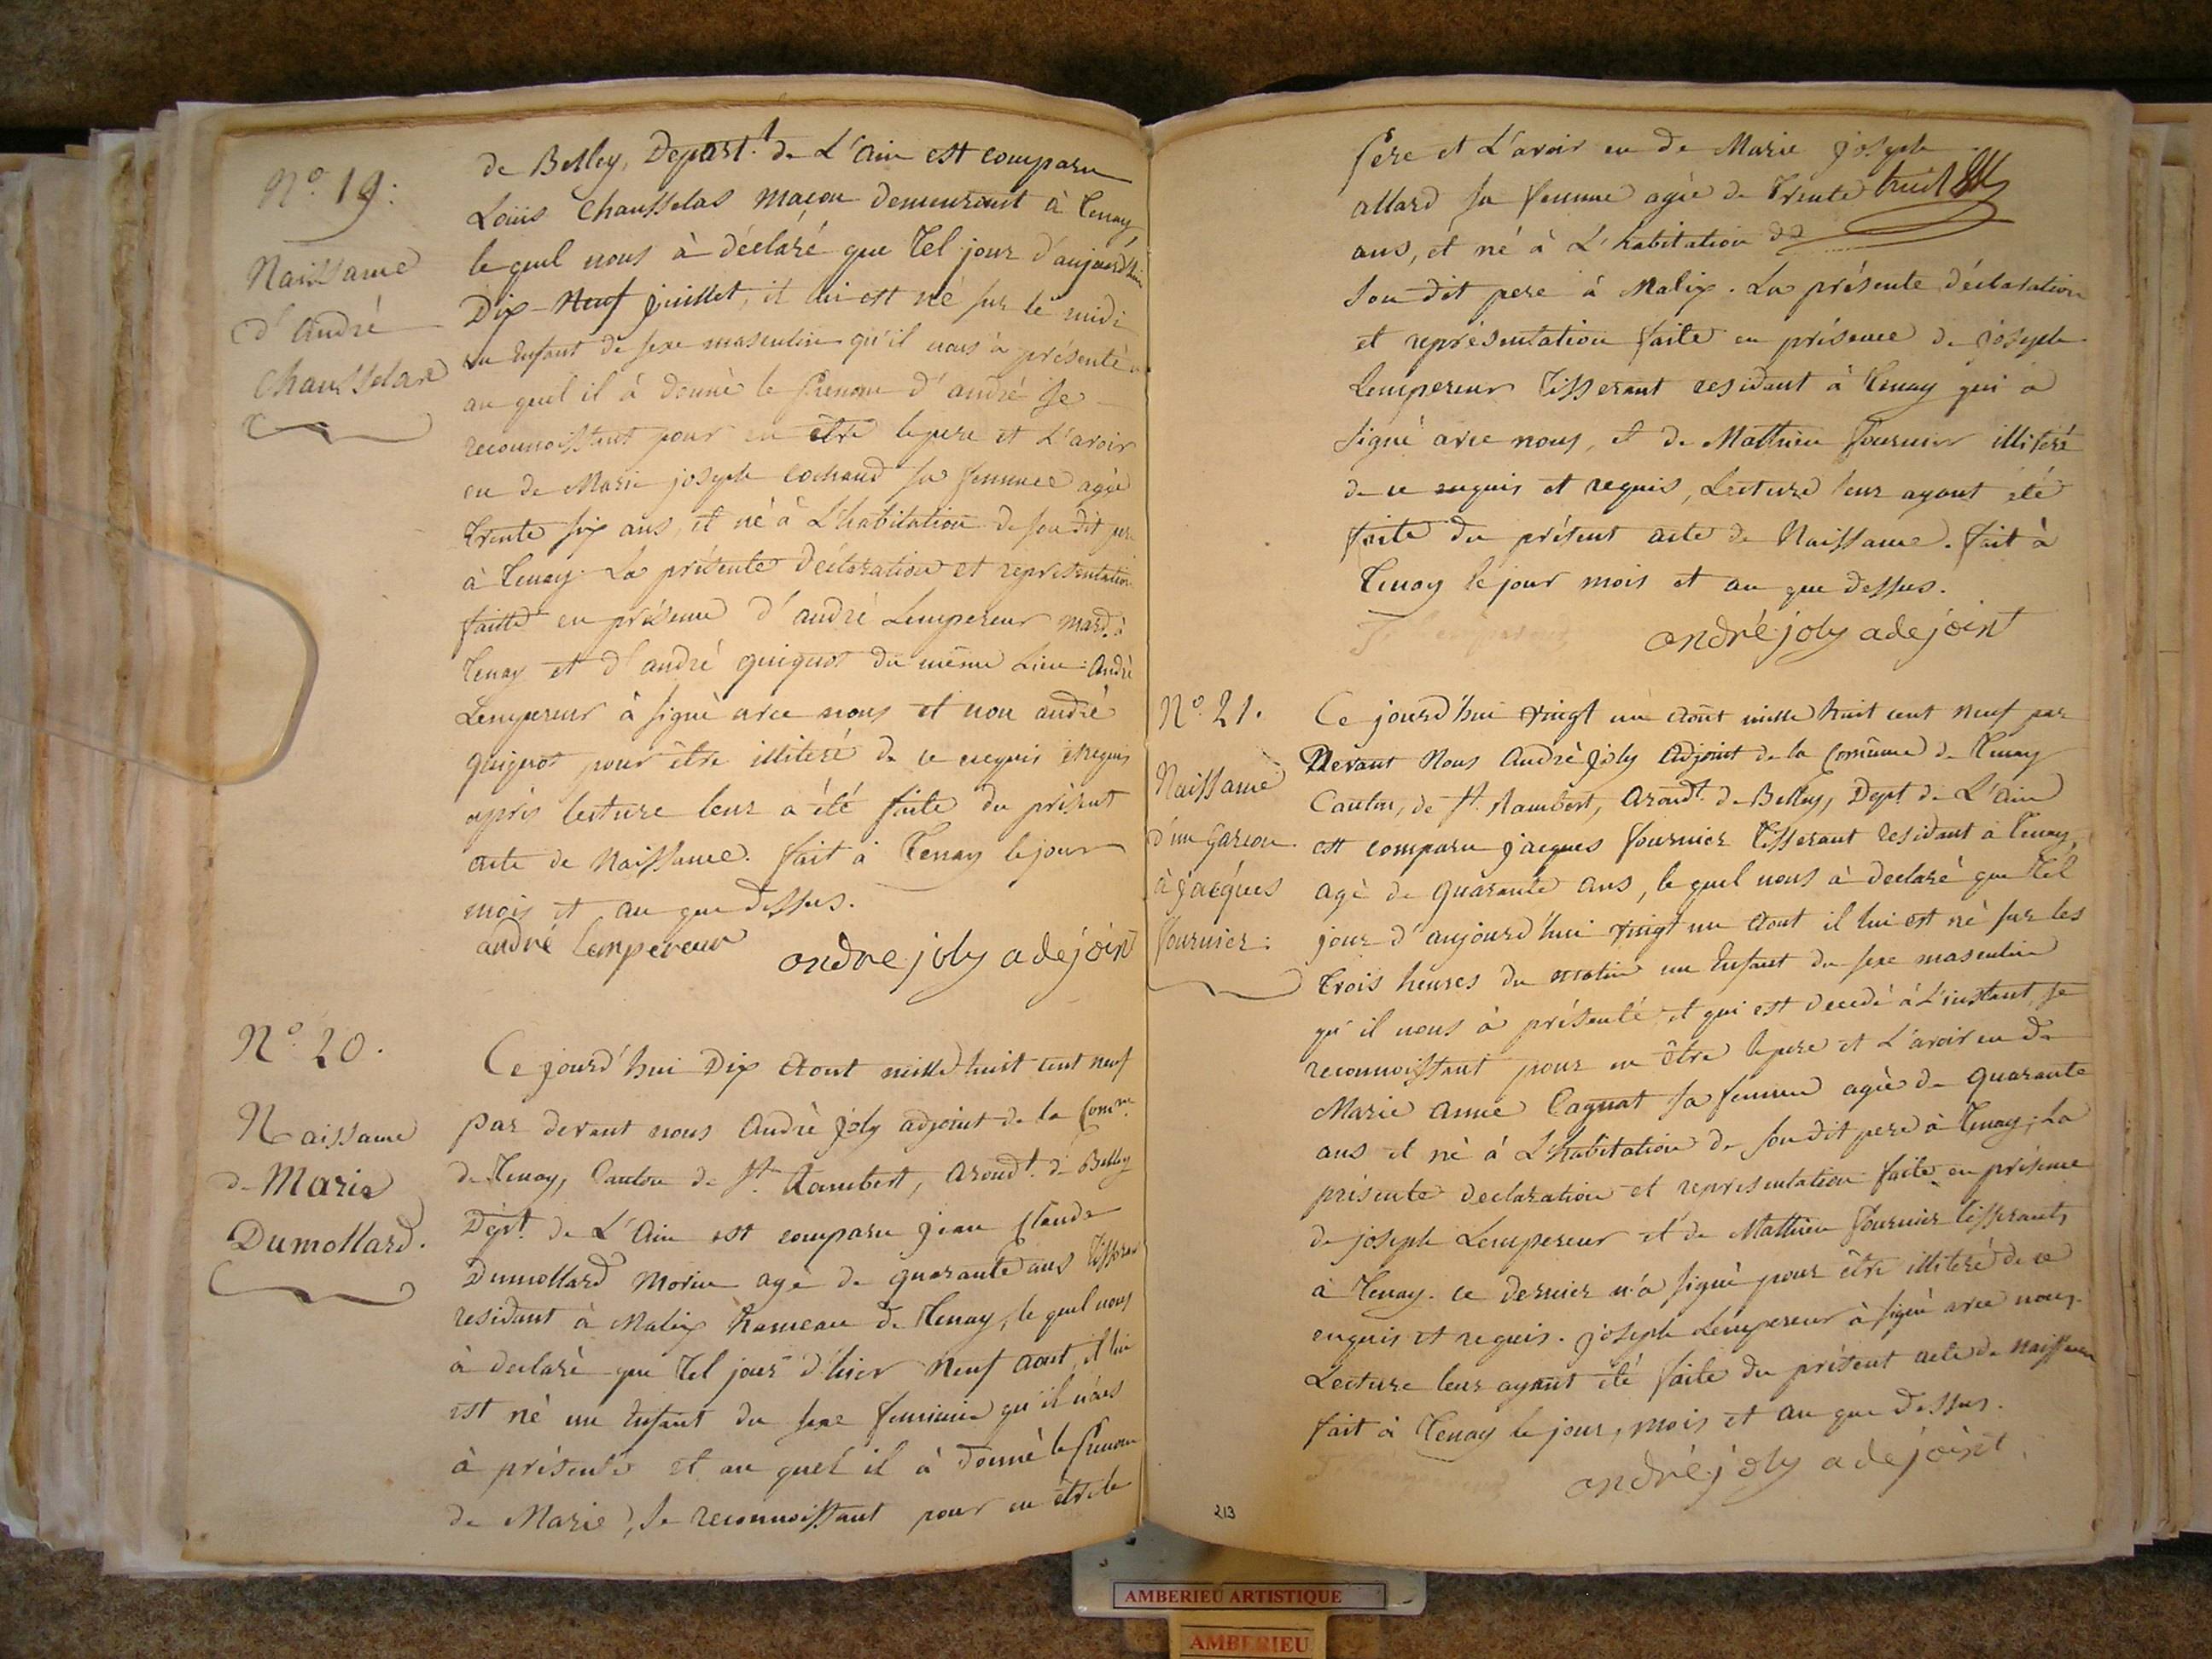 N.º 19.
Naissance
d'André
Chausselas
de Belley, Depart.t de L'Ain est comparu
Louis Chausselas maçon demeurant à Tenay
le quel nous à déclaré que Tel jour d'aujourd'hui
Dix-Neuf Juillet, il lui est né sur le midi
un Enfant de sexe masculin qu'il nous à présenté
au quel il à donné le Prenom d'andré se
reconnoissant pour en être le pere et L'avoir
eu de Marie joseph Cochand sa femme agée
Trente six ans, et né à L'habitation de son dit pere
à Tenay. La présente déclaration et représentation
faitte en présence d'andré Lempereur mard. à
Tenay et d'andré guignot du même Lieu. André
Lempereur à signé avec nous et non andré
guignot pour être illiteré de ce enquis et requis
après lecture leur a été faite du présent
acte de Naissance. fait à Tenay le jour
mois et an que dessus.
andré lempereur andre joly adejoint
N.º 20.
Naissance
de Marie
Dumollard.
Ce jourd'hui Dix Aout mille huit cent neuf
par devant nous André Joly adjoint de la Comne
de Tenay, Canton de St. Rambert, Arondt. de Belley
Dept. de L'Ain est comparu jean Claude
Dumollard Morin agé de quarante ans Tisseran
residant à Malix hameau de Tenay, le quel nous
à declaré que Tel jour d'hier Neuf Aout, il lui
est né un Enfant du sexe feminin qu'il nous
à présenté et au quel il à donné le Prenom
de Marie, se reconnoissant pour en être le
Pere et L'avoir eu de Marie Joseph
allard sa femme agée de Trente huit
ans, et né à L'habitation de
son dit pere à Malix. La présente déclaration
et représentation faite en présence de joseph
Lempereur Tisserant residant à Tenay qui a
signé avec nous, et de Mathieu fournier illiteré
de ce enquis et requis, Lecture leur ayant été
faite du présent acte de Naissance. fait à
Tenay le jour mois et an que dessus.
J Lempereur andré joly adejoint
N.º 21.
Naissance
d'un Garcon
à Jacques
fournier.
Ce jourd'hui vingt un Aout mille huit cent neuf par
Devant Nous André Joly Adjoint de la Comune de Tenay
Canton, de St. Rambert, Arondt. de Belley, Dept. de L'Ain
est comparu jacques fournier Tisserant residant à Tenay,
agé de quarante ans, le quel nous à declaré que Tel
jour d'aujourd'hui vingt un Aout il lui est né sur les
trois heures du matin un Enfant du sexe masculin
qu'il nous à présenté et qui est decedé à L'instant, se
reconnoissant pour en être le pere et L'avoir eu de
Marie Anne Cagnat sa femme agée de quarante
ans et né à L'habitation de son dit pere à Tenay; La
présente declaration et representation faite en présence
de joseph Lempereur et de Mathieu fournier tisserants
à Tenay. ce dernier n'a signé pour être illiteré de ce
enquis et requis. joseph Lempereur à signé avec nous.
Lecture leur ayant été faite du présent acte de naissance
fait à Tenay le jour, mois et an que dessus.
andré joly adejoint
213
AMBERIEU ARTISTIQUE
AMBERIEU